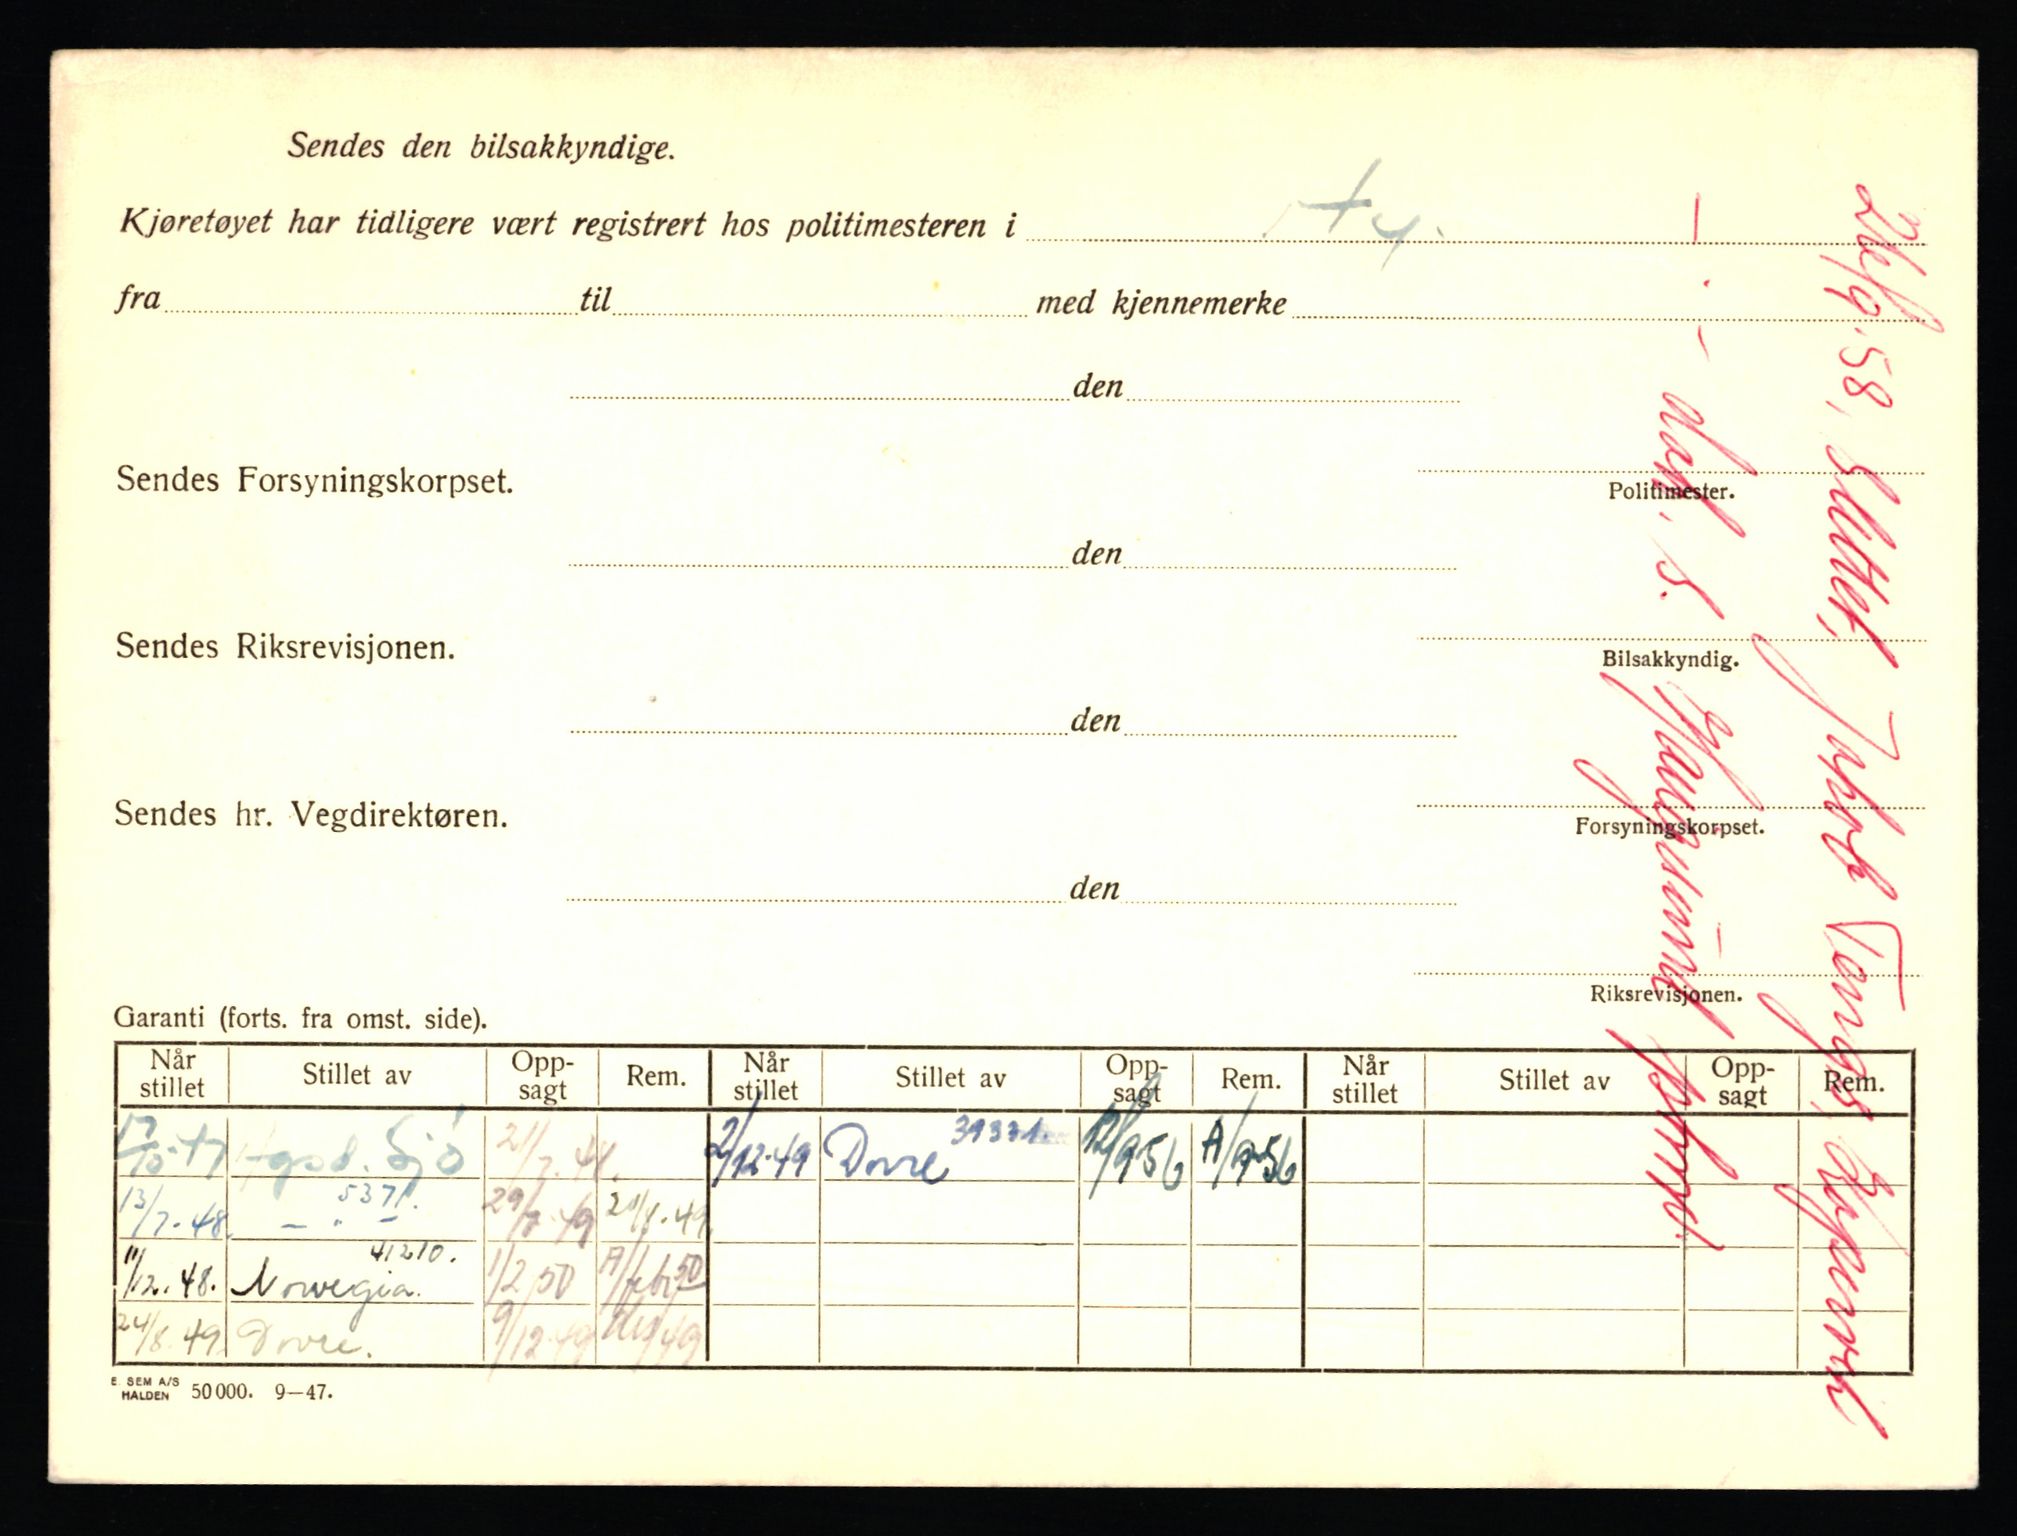 Sendes den bilsakkyndige.
Kjøretøyet har tidligere vært registrert hos politimesteren i Ny.
fra til med kjennemerke
den
Sendes Forsyningskorpset.
Politimester.
den
Sendes Riksrevisjonen.
Bilsakkyndig.
den
Sendes hr. Vegdirektøren.
Forsyningskorpset.
den
Riksrevisjonen.
Garanti (forts. fra omst. side).
Når stillet Stillet av Oppsagt Rem. Når stillet Stillet av Oppsagt Rem. Når stillet Stillet av Oppsagt Rem.
2/12-49 Dovre 12/9-56 A/9-56
5371.
13/7-48 — " — 29/7-49
41210.
11/12.48. Norwegia. 1/2 50 A/febr 50
24/8.49 Dovre. 9/12-49
E. SEM A/S
HALDEN 50 000. 9—47.
58, Slettet, Jakob